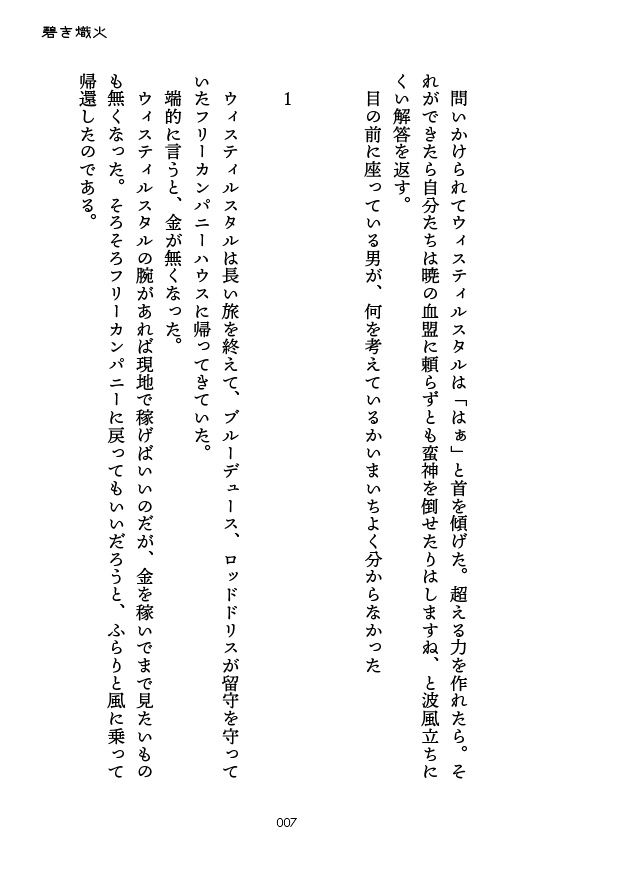 碧き熾火
問いかけられてウィスティルスタルは「はぁ」と首を傾げた。超える力を作れたら。そ
れができたら自分たちは暁の血盟に頼らずとも蛮神を倒せたりはしますね、と波風立ちに
くい解答を返す。
目の前に座っている男が、何を考えているかいまいちよく分からなかった
1
ウィスティルスタルは長い旅を終えて、ブルーデュース、ロッドドリスが留守を守って
いたフリーカンパニーハウスに帰ってきていた。
端的に言うと、金が無くなった。
ウィスティルスタルの腕があれば現地で稼げばいいのだが、金を稼いでまで見たいもの
も無くなった。そろそろフリーカンパニーに戻ってもいいだろうと、ふらりと風に乗って
帰還したのである。
007